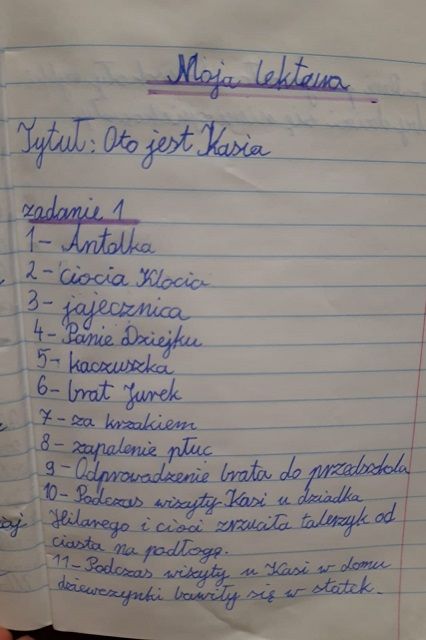 Moja lektura
Tytuł: Oto jest Kasia
zadanie 1
1- Antolka
2- ciocia Klocia
3- jajecznica
4- Panie Dziejku
5- kaczuszka
6- brat Jurek
7- za krzakiem
8- zapalenie płuc
9- Odprowadzenie brata do przedszkola
10- Podczas wizyty Kasi u dziadka
Hilarego i cioci zrzuciła talerzyk od
ciasta na podłogę.
11- Podczas wizyty u Kasi w domu
dziewczynki bawiły się w statek.